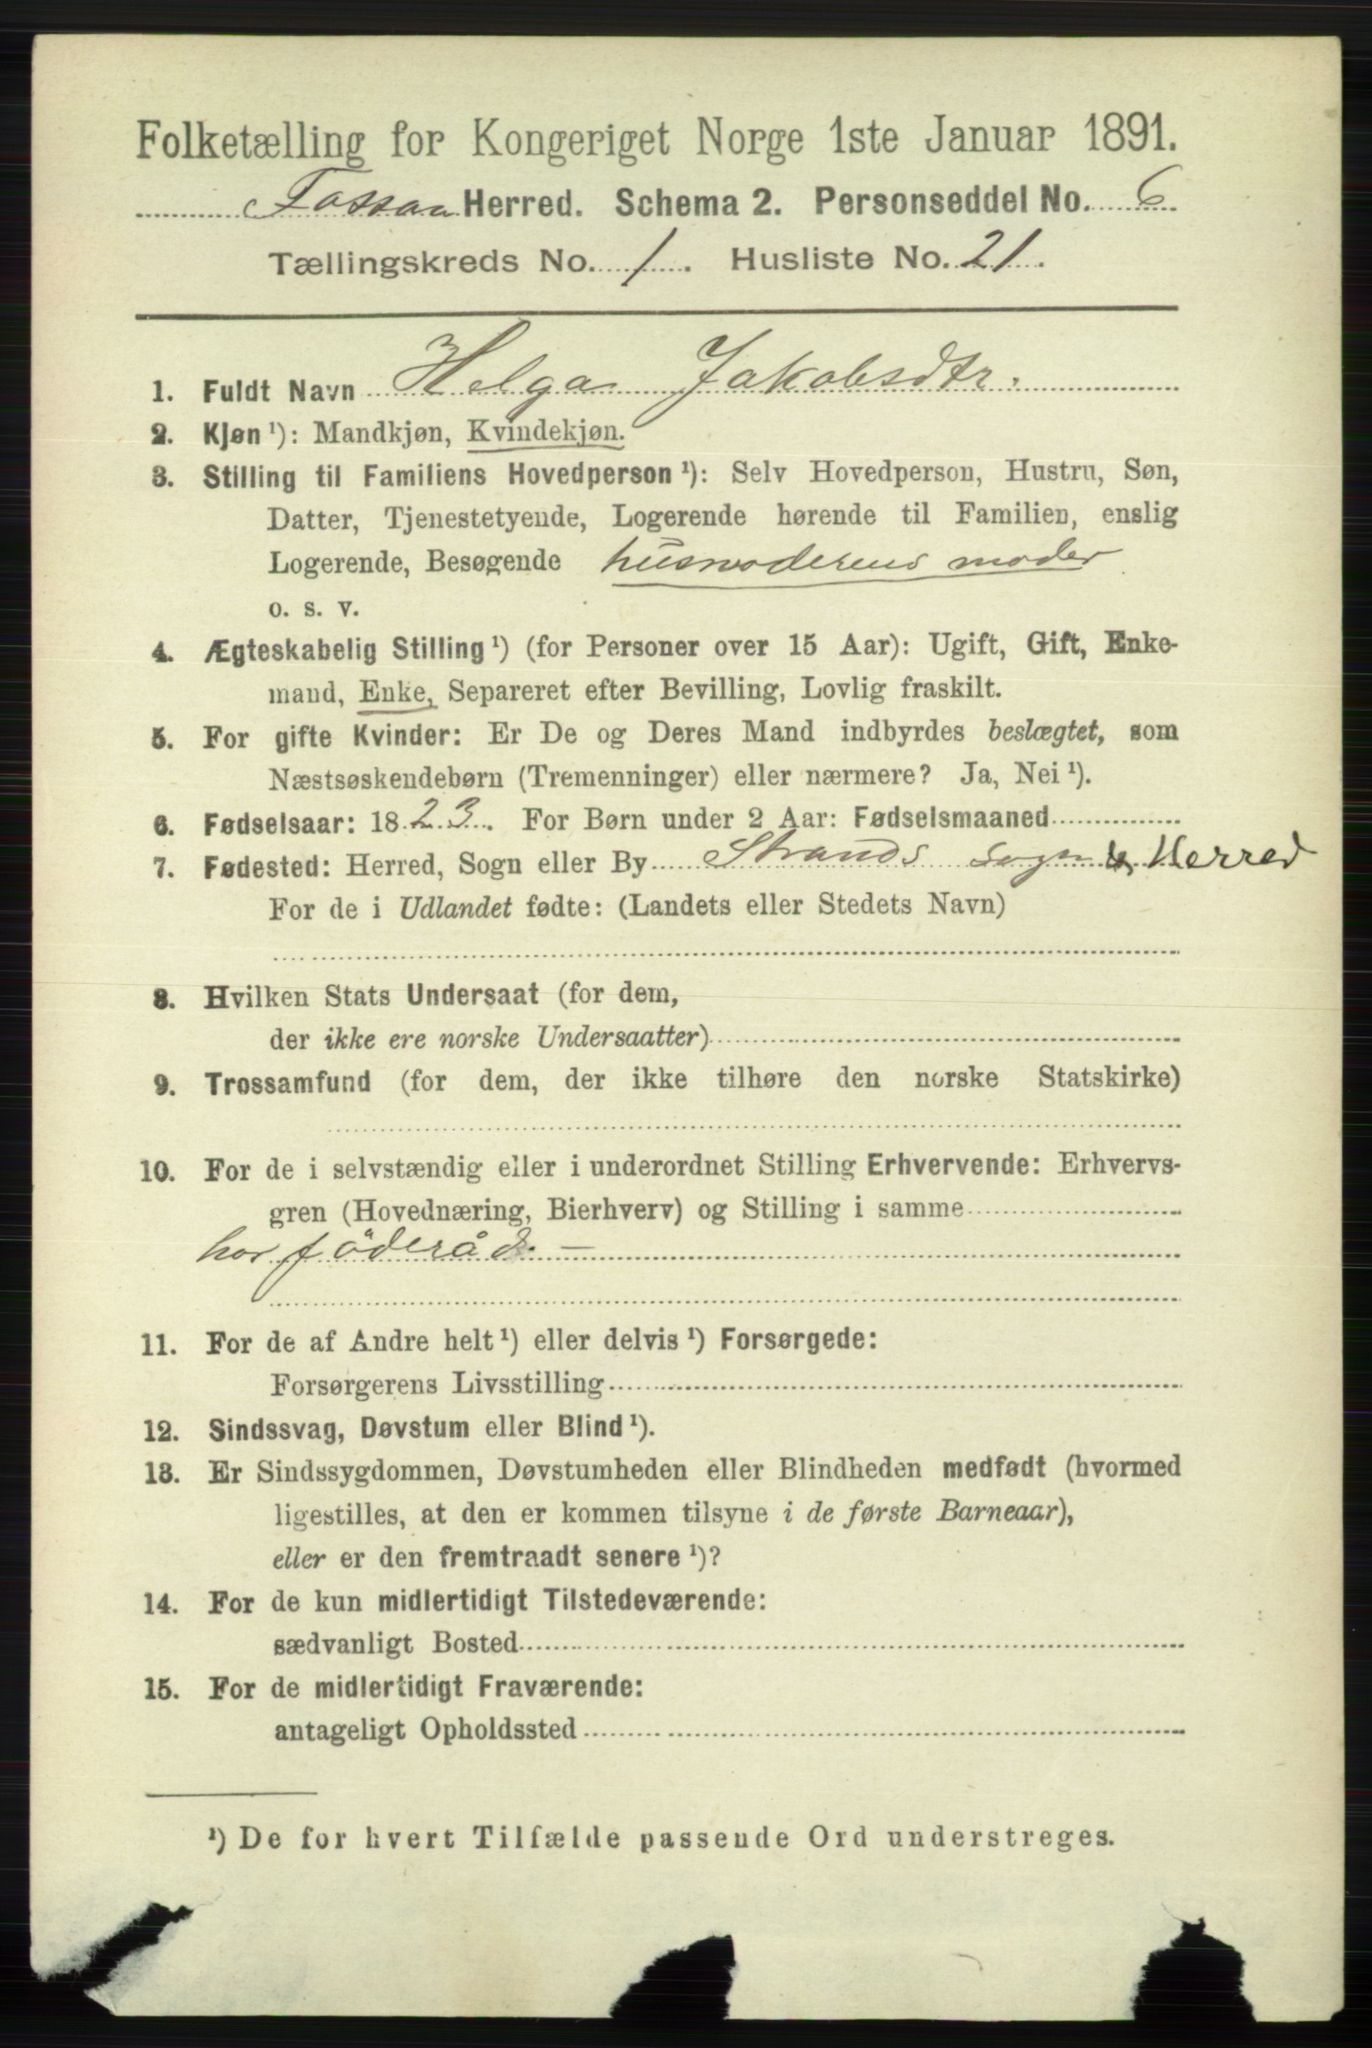 Folketælling for Kongeriget Norge 1ste Januar 1891.
Fossan Herred. Schema 2. Personseddel No. 6
Tællingskreds No. 1. Husliste No. 21.
1. Fuldt Navn Helga Jakobsdtr.
2. Kjøn¹): Mandkjøn, Kvindekjøn.
3. Stilling til Familiens Hovedperson¹): Selv Hovedperson, Hustru, Søn,
Datter, Tjenestetyende, Logerende hørende til Familien, enslig
Logerende, Besøgende husmoderens moder
o. s. v.
4. Ægteskabelig Stilling¹) (for Personer over 15 Aar): Ugift, Gift, Enke-
mand, Enke, Separeret efter Bevilling, Lovlig fraskilt.
5. For gifte Kvinder: Er De og Deres Mand indbyrdes beslægtet, som
Næstsøskendebørn (Tremenninger) eller nærmere? Ja, Nei¹).
6. Fødselsaar: 1823. For Børn under 2 Aar: Fødselsmaaned
7. Fødested: Herred, Sogn eller By Strands sogn & Herred
For de i Udlandet fødte: (Landets eller Stedets Navn)
8. Hvilken Stats Undersaat (for dem,
der ikke ere norske Undersaatter)
9. Trossamfund (for dem, der ikke tilhøre den norske Statskirke)
10. For de i selvstændig eller i underordnet Stilling Erhvervende: Erhvervs-
gren (Hovednæring, Bierhverv) og Stilling i samme
har föderåd. —
11. For de af Andre helt¹) eller delvis¹) Forsørgede:
Forsørgerens Livsstilling
12. Sindssvag, Døvstum eller Blind¹).
13. Er Sindssygdommen, Døvstumheden eller Blindheden medfødt (hvormed
ligestilles, at den er kommen tilsyne i de første Barneaar),
eller er den fremtraadt senere¹)?
14. For de kun midlertidigt Tilstedeværende:
sædvanligt Bosted
15. For de midlertidigt Fraværende:
antageligt Opholdssted
¹) De for hvert Tilfælde passende Ord understreges.